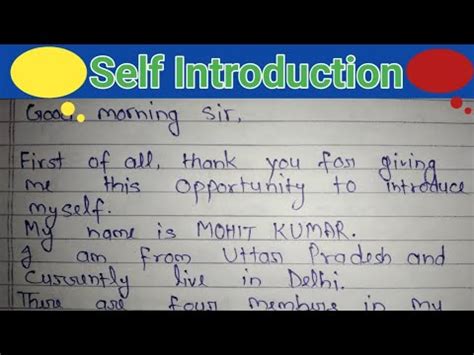 Self Introduction
Good morning Sir,
First of all, thank you for giving
me this opportunity to introduce
myself.
My name is MOHIT KUMAR.
I am from Uttar Pradesh and
Currently live in Delhi.
There are four members in my